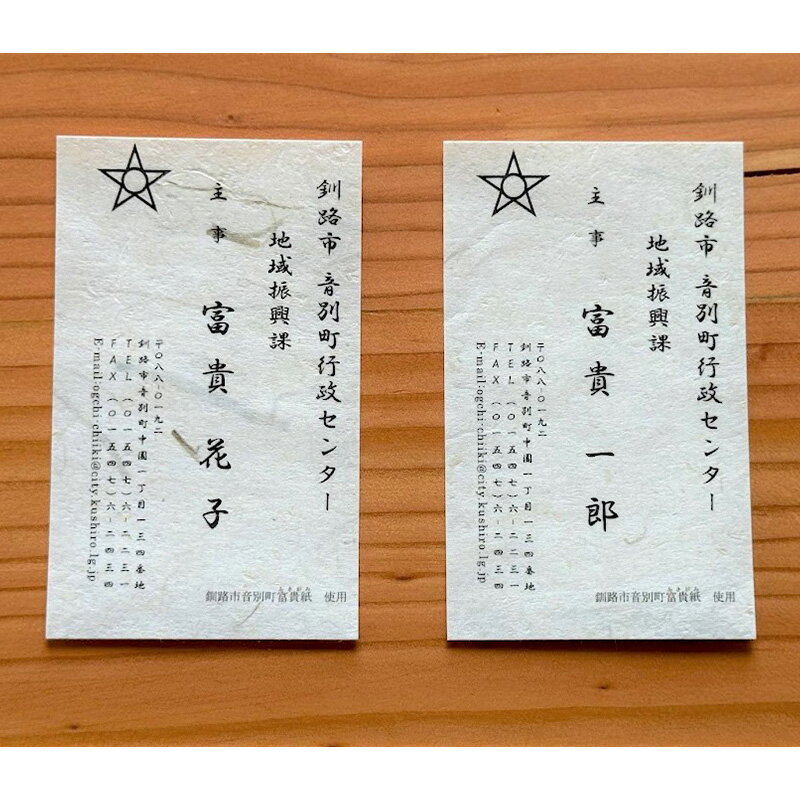 釧路市 音別町行政センター
地域振興課
主事 富貴 花子
〒〇八八-〇一九二
釧路市音別町中園一丁目一三四番地
TEL (〇一五四七)六-二二三一
FAX (〇一五四七)六-二四三四
E-mail:ogchi-chiiki@city.kushiro.lg.jp
ふきがみ
釧路市音別町富貴紙 使用
釧路市 音別町行政センター
地域振興課
主事 富貴 一郎
〒〇八八-〇一九二
釧路市音別町中園一丁目一三四番地
TEL (〇一五四七)六-二二三一
FAX (〇一五四七)六-二四三四
E-mail:ogchi-chiiki@city.kushiro.lg.jp
ふきがみ
釧路市音別町富貴紙 使用